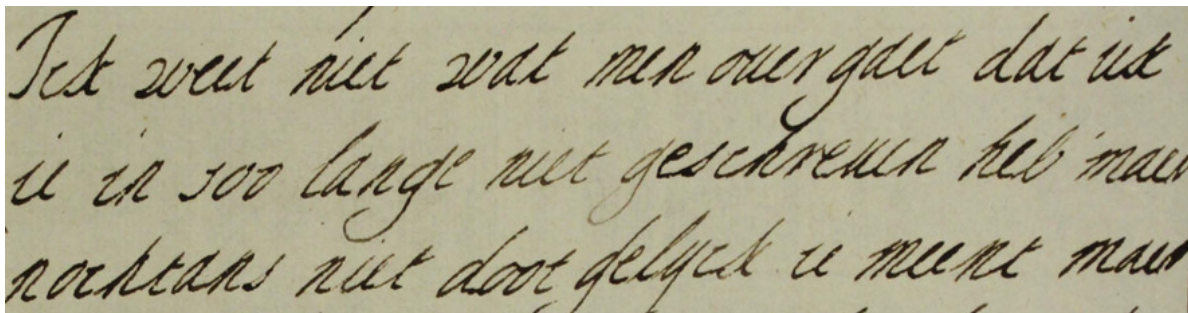 Ick weet niet wat men overgaet dat ick
ie in soo lange niet geschreven heb maer
nochtans niet doot gelyck ie meent maer